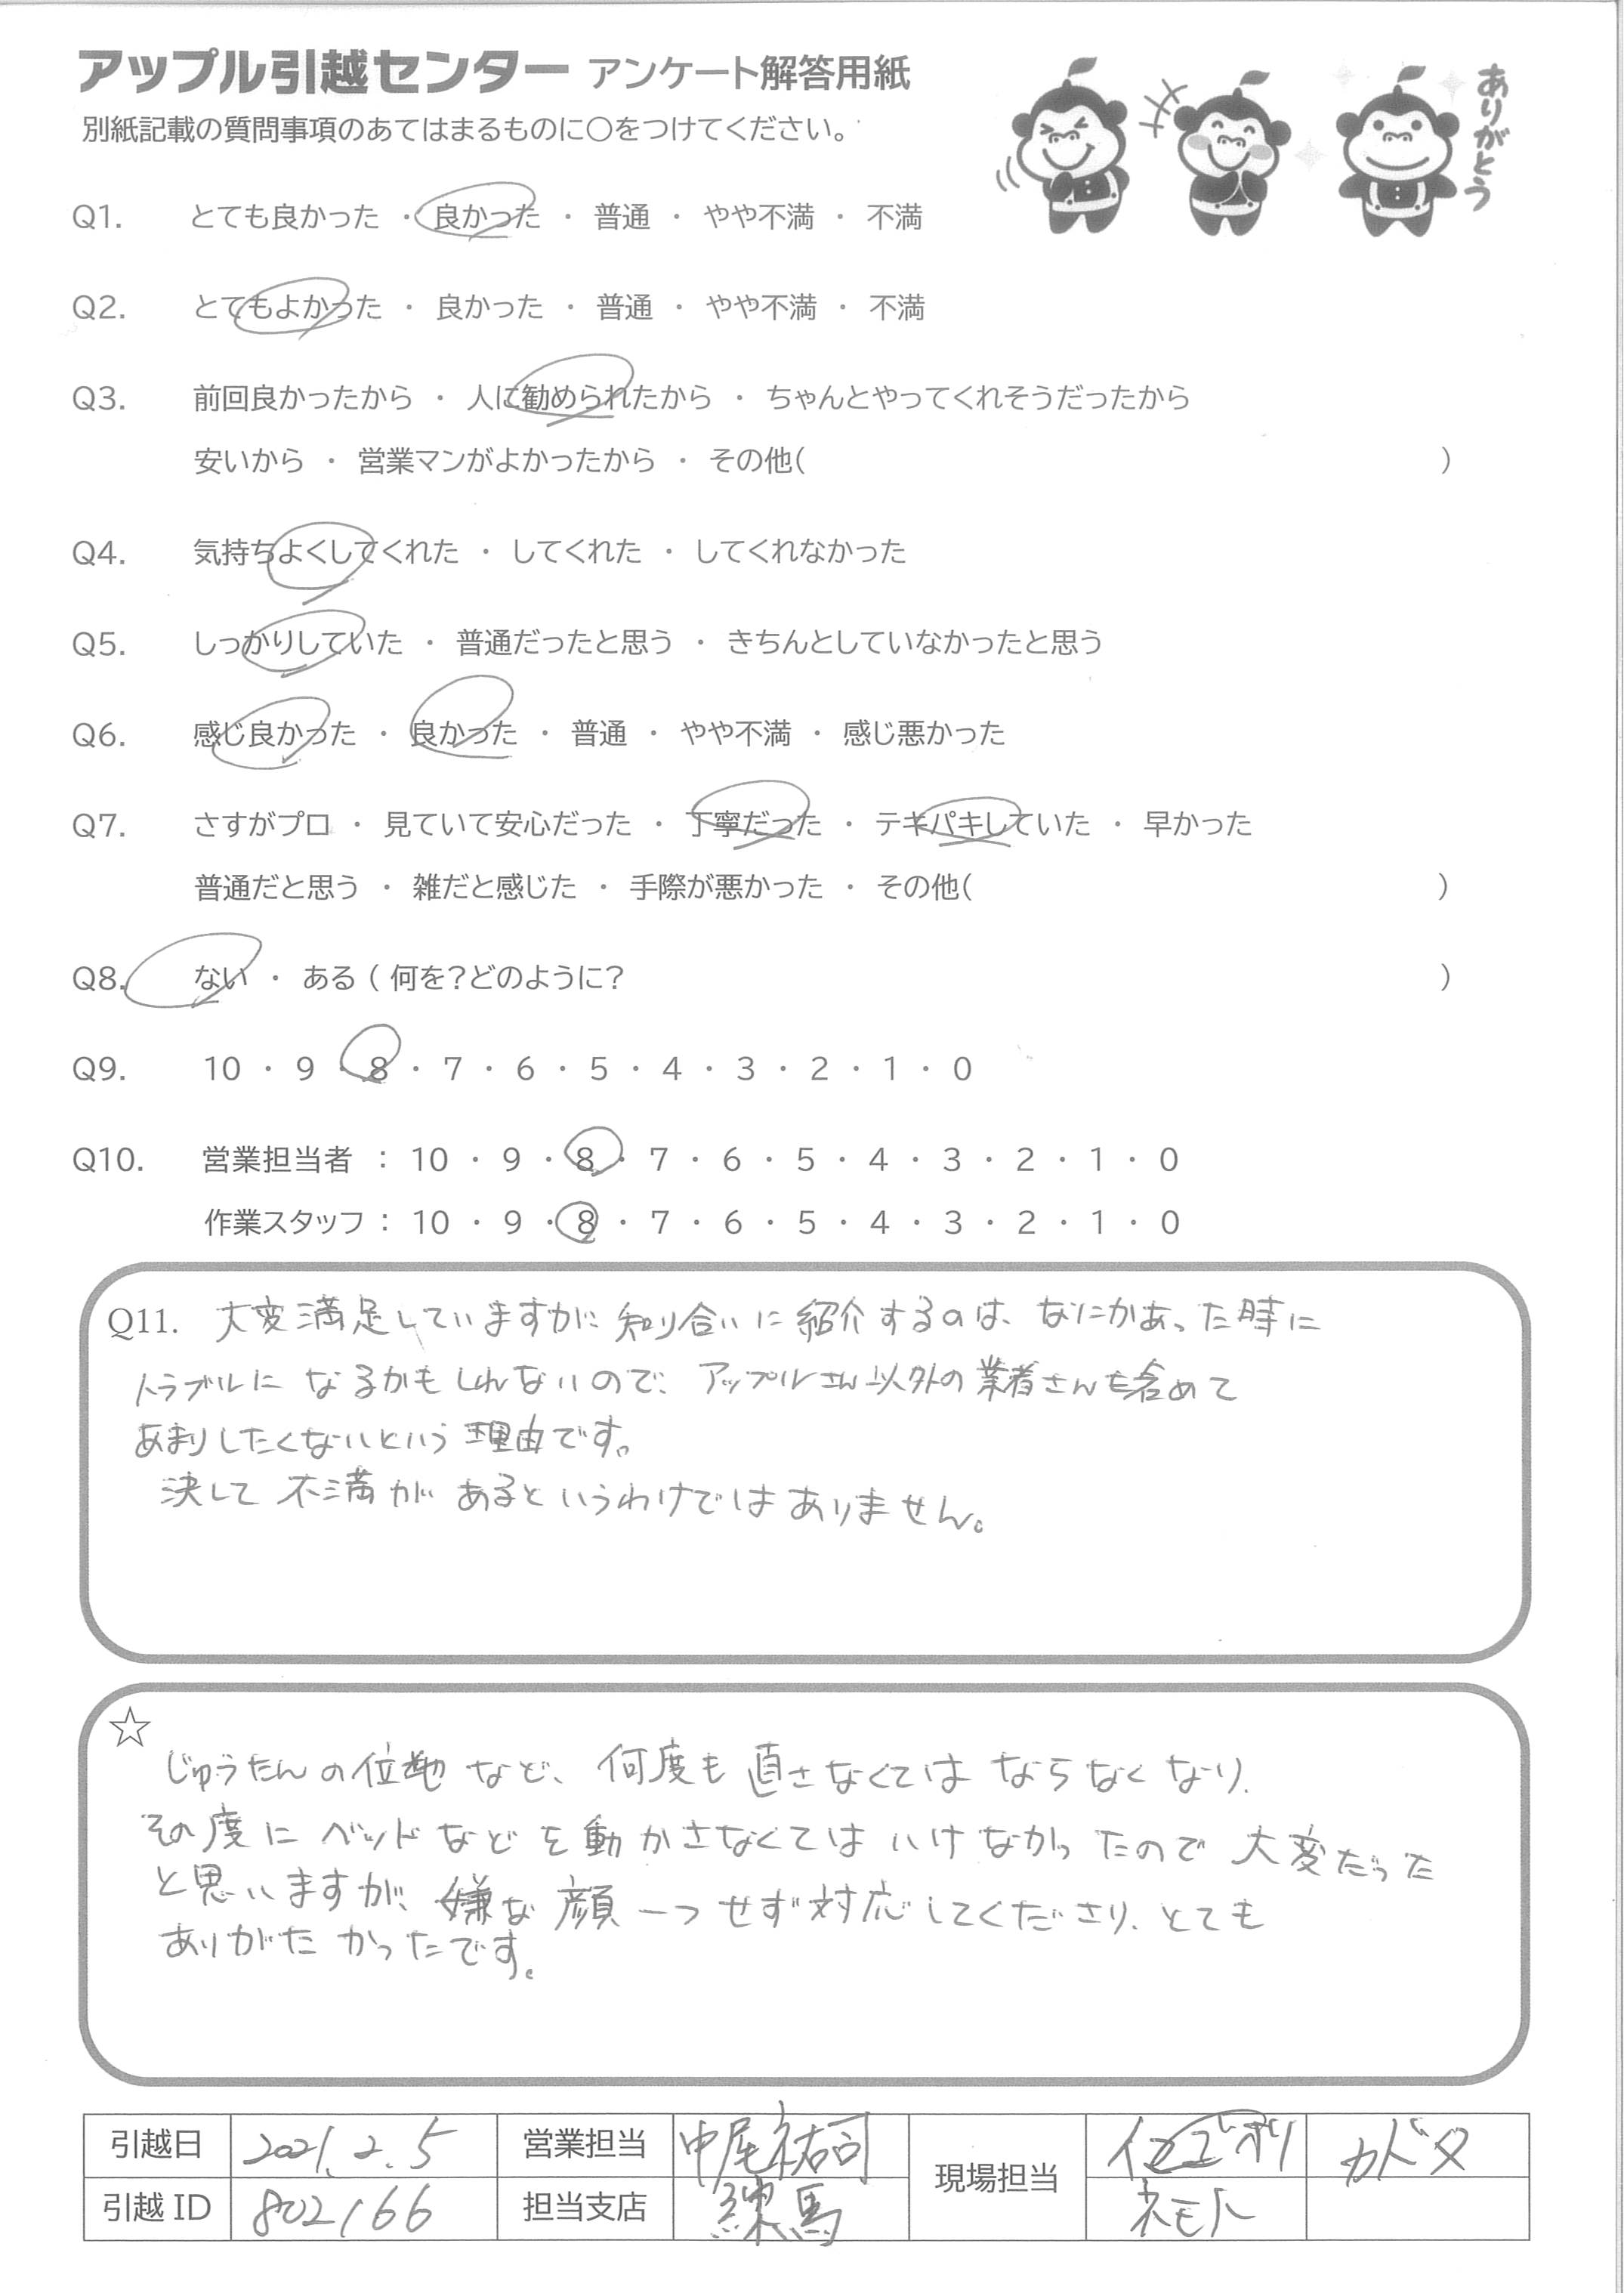 アップル引越センター アンケート解答用紙
ありがとう
別紙記載の質問事項のあてはまるものに○をつけてください。
Q1. とても良かった ・ 良かった ・ 普通 ・ やや不満 ・ 不満
Q2. とてもよかった ・ 良かった ・ 普通 ・ やや不満 ・ 不満
Q3. 前回良かったから ・ 人に勧められたから ・ ちゃんとやってくれそうだったから
安いから ・ 営業マンがよかったから ・ その他( )
Q4. 気持ちよくしてくれた ・ してくれた ・ してくれなかった
Q5. しっかりしていた ・ 普通だったと思う ・ きちんとしていなかったと思う
Q6. 感じ良かった ・ 良かった ・ 普通 ・ やや不満 ・ 感じ悪かった
Q7. さすがプロ ・ 見ていて安心だった ・ 丁寧だった ・ テキパキしていた ・ 早かった
普通だと思う ・ 雑だと感じた ・ 手際が悪かった ・ その他( )
Q8. ない ・ ある ( 何を?どのように? )
Q9. 10 ・ 9 ・ 8 ・ 7 ・ 6 ・ 5 ・ 4 ・ 3 ・ 2 ・ 1 ・ 0
Q10. 営業担当者 : 10 ・ 9 ・ 8 ・ 7 ・ 6 ・ 5 ・ 4 ・ 3 ・ 2 ・ 1 ・ 0
作業スタッフ : 10 ・ 9 ・ 8 ・ 7 ・ 6 ・ 5 ・ 4 ・ 3 ・ 2 ・ 1 ・ 0
Q11. 大変満足していますが、知り合いに紹介するのは、なにかあった時に
トラブルになるかもしれないので、アップルさん以外の業者さんも含めて
あまりしたくないという理由です。
決して不満があるというわけではありません。
☆
じゅうたんの位地など、何度も直さなくてはならなくなり、
その度にベッドなどを動かさなくてはいけなかったので大変だった
と思いますが、嫌な顔一つせず対応してくださり、とても
ありがたかったです。
引越日 2021.2.5 営業担当 中尾祐司 現場担当 カドタ
引越ID 802166 担当支店 練馬 ネモト